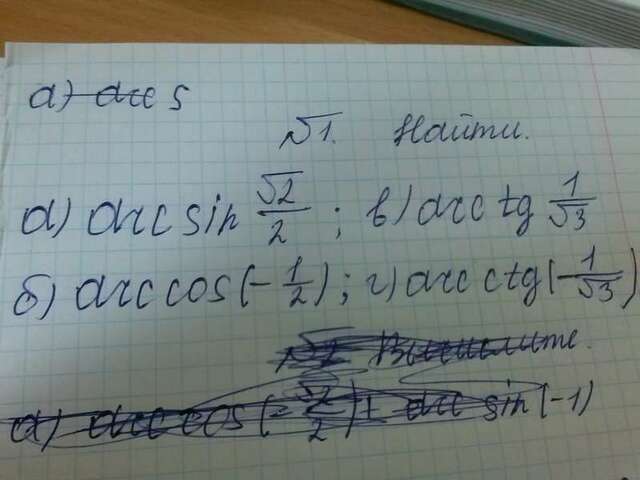 а) arc s
№1. Найти.
а) arc sin √2/2 ; в) arc tg 1/√3
б) arc cos (-1/2) ; г) arc ctg (-1/√3)
№2 Вычислите.
а) arc cos (-√2/2) + arc sin (-1)